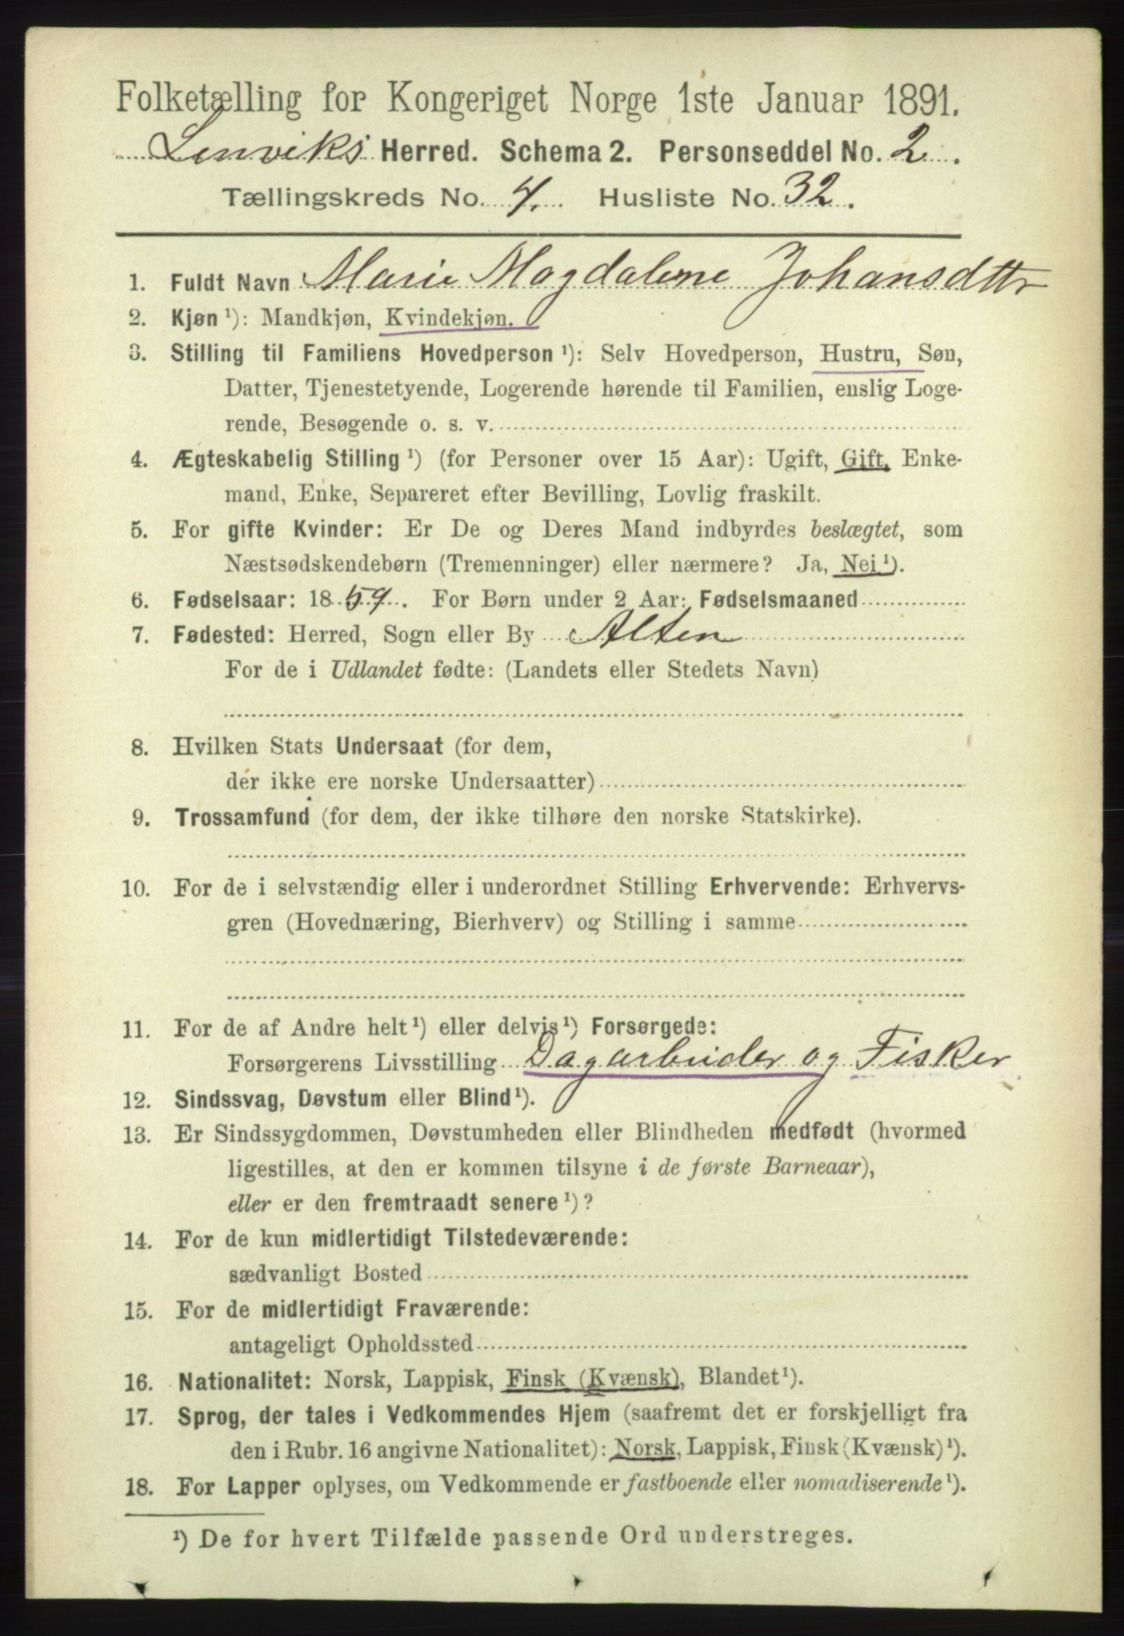 Folketælling for Kongeriget Norge 1ste Januar 1891.
Lenviks Herred. Schema 2. Personseddel No. 2.
Tællingskreds No. 4. Husliste No. 32.
1. Fuldt Navn Marie Magdalene Johansdttr
2. Kjøn ¹): Mandkjøn, Kvindekjøn.
3. Stilling til Familiens Hovedperson ¹): Selv Hovedperson, Hustru, Søn,
Datter, Tjenestetyende, Logerende hørende til Familien, enslig Loge-
rende, Besøgende o. s. v.
4. Ægteskabelig Stilling ¹) (for Personer over 15 Aar): Ugift, Gift, Enke-
mand, Enke, Separeret efter Bevilling, Lovlig fraskilt.
5. For gifte Kvinder: Er De og Deres Mand indbyrdes beslægtet, som
Næstsødskendebørn (Tremenninger) eller nærmere? Ja, Nei ¹).
6. Fødselsaar: 1859. For Børn under 2 Aar: Fødselsmaaned
7. Fødested: Herred, Sogn eller By Alten
For de i Udlandet fødte: (Landets eller Stedets Navn)
8. Hvilken Stats Undersaat (for dem,
der ikke ere norske Undersaatter)
9. Trossamfund (for dem, der ikke tilhøre den norske Statskirke).
10. For de i selvstændig eller i underordnet Stilling Erhvervende: Erhvervs-
gren (Hovednæring, Bierhverv) og Stilling i samme
11. For de af Andre helt ¹) eller delvis ¹) Forsørgede:
Forsørgerens Livsstilling Dagarbeider og Fisker
12. Sindssvag, Døvstum eller Blind ¹).
13. Er Sindssygdommen, Døvstumheden eller Blindheden medfødt (hvormed
ligestilles, at den er kommen tilsyne i de første Barneaar),
eller er den fremtraadt senere ¹)?
14. For de kun midlertidigt Tilstedeværende:
sædvanligt Bosted
15. For de midlertidigt Fraværende:
antageligt Opholdssted
16. Nationalitet: Norsk, Lappisk, Finsk (Kvænsk), Blandet ¹).
17. Sprog, der tales i Vedkommendes Hjem (saafremt det er forskjelligt fra
den i Rubr. 16 angivne Nationalitet): Norsk, Lappisk, Finsk (Kvænsk) ¹).
18. For Lapper oplyses, om Vedkommende er fastboende eller nomadiserende ¹).
¹) De for hvert Tilfælde passende Ord understreges.